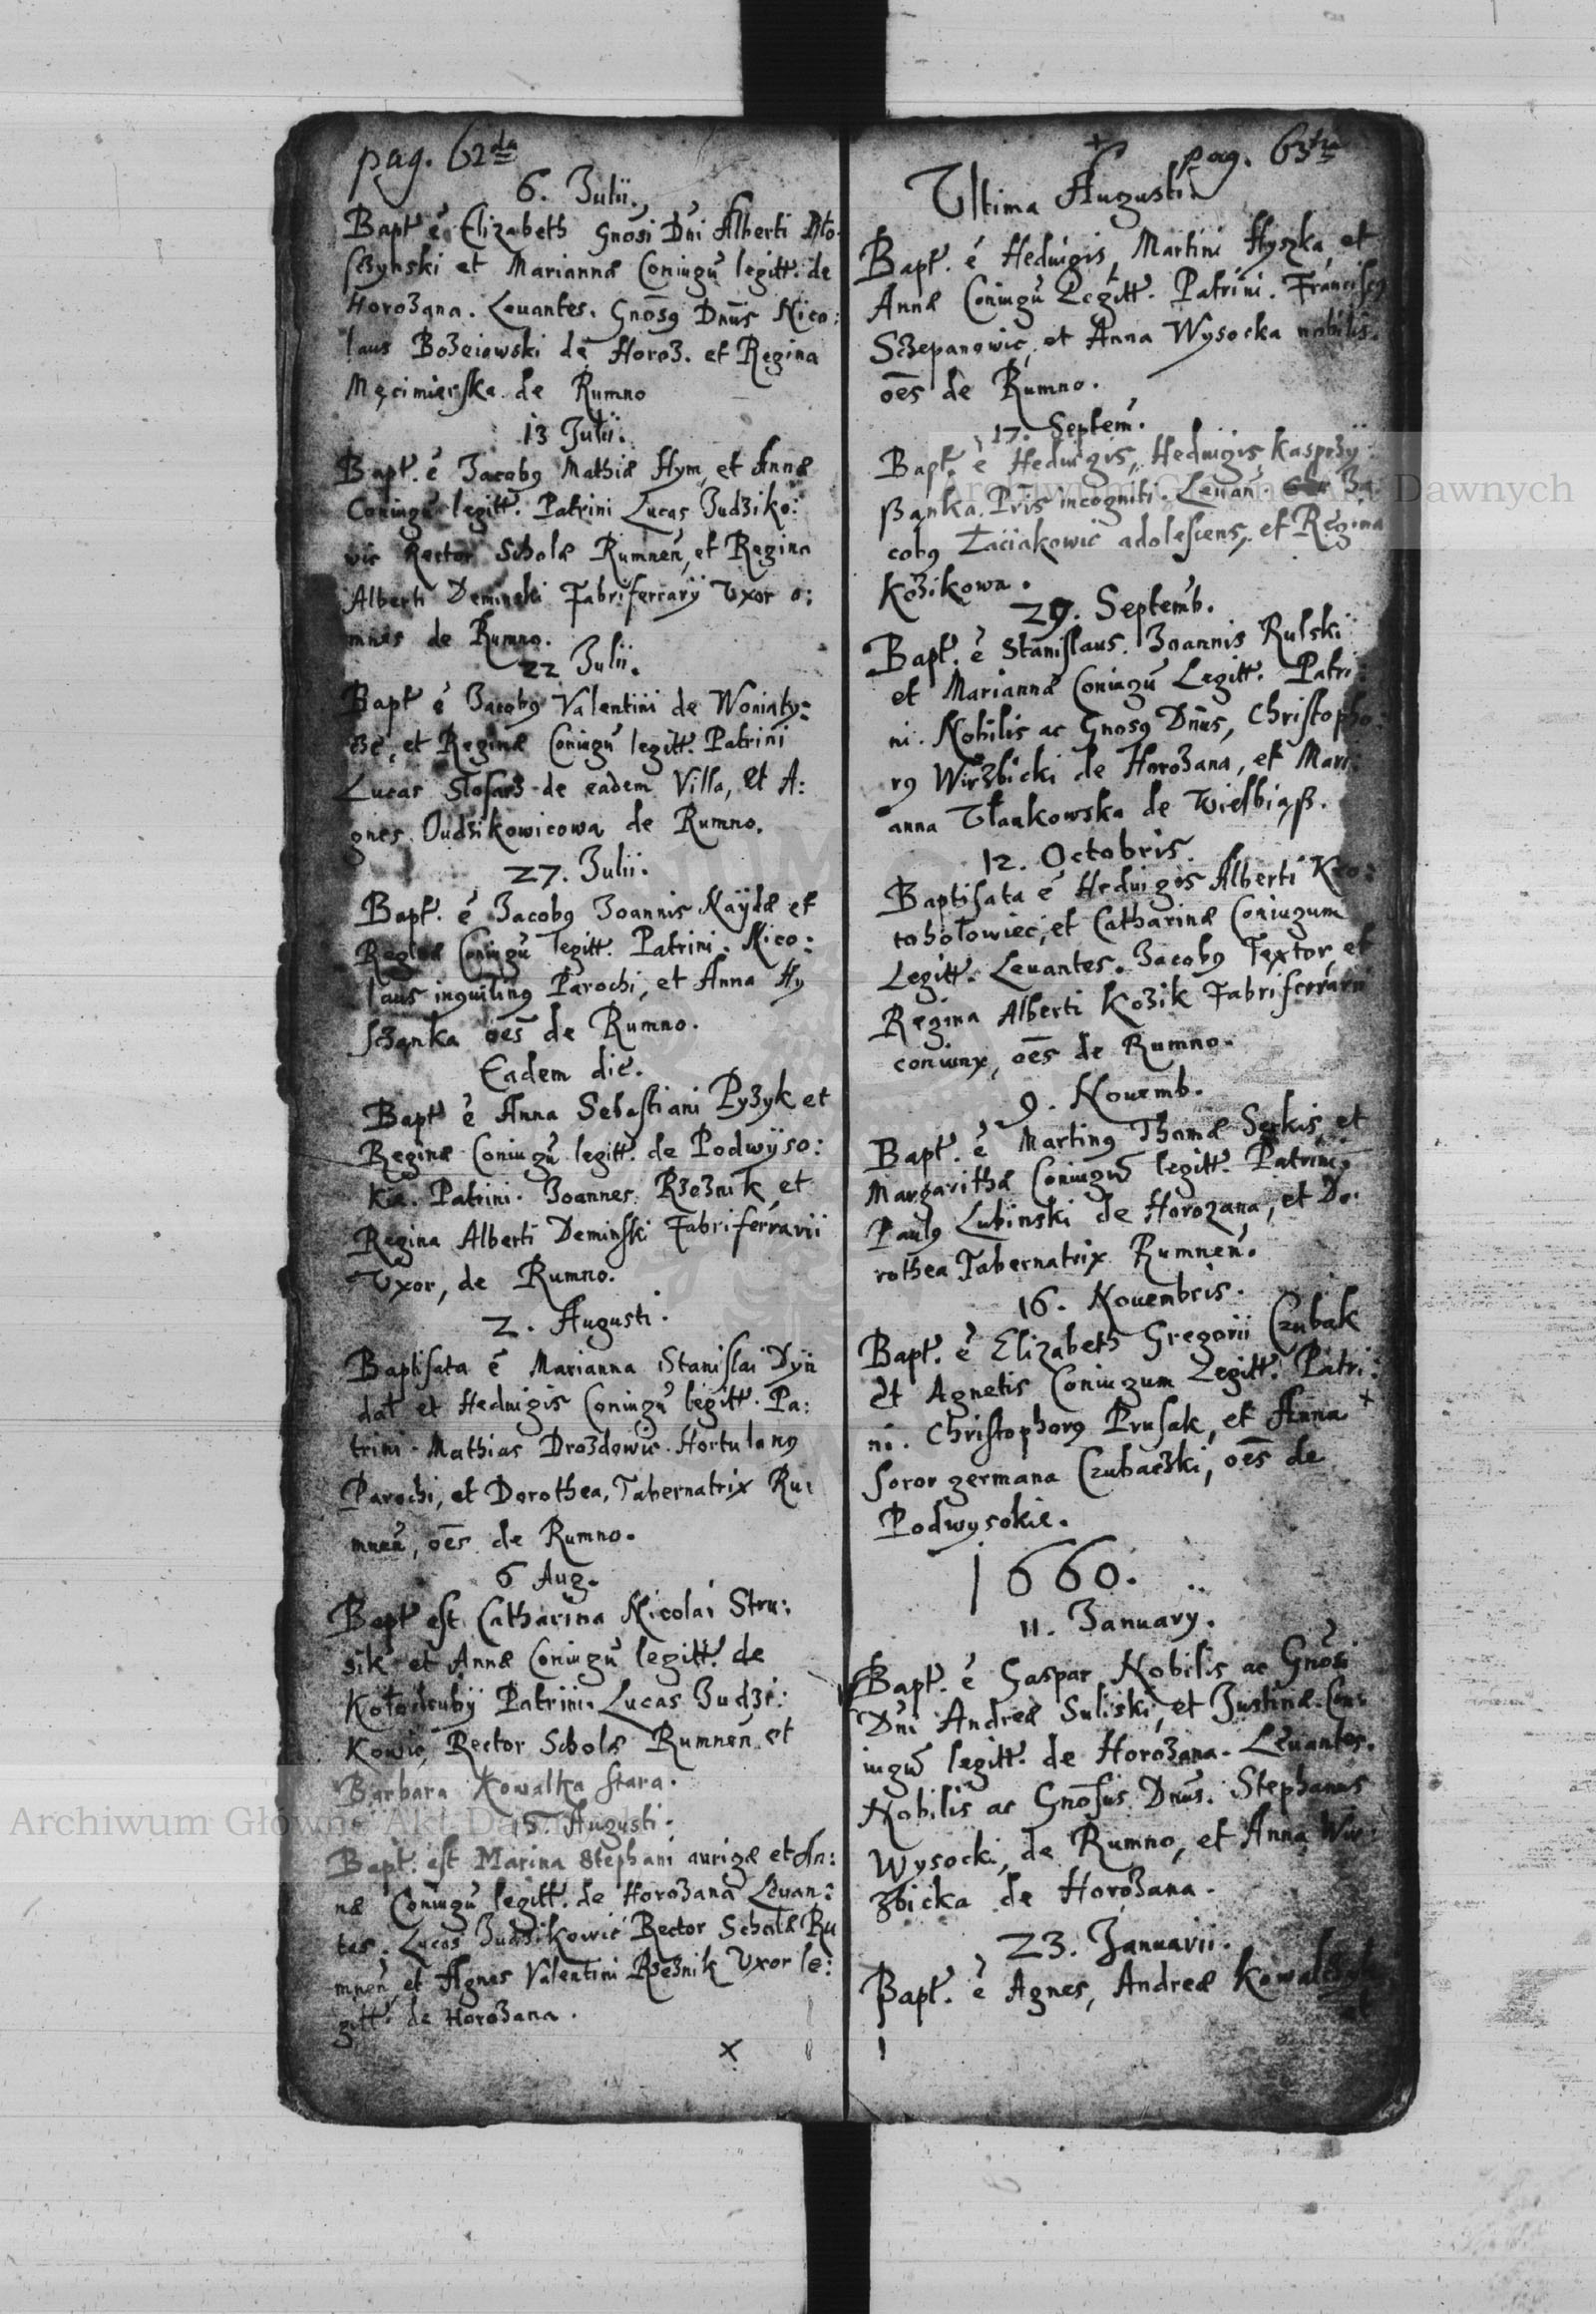 pag. 62da
6. Julii.
Bapt. ē Elizabeth Gnosi Dni Alberti Dło:
sczynski et Mariannæ Coniugū legitt. de
Horozana. Leuantes. Gnosꝯ Dnus Nico:
laus Bozeiowski de Horoz. et Regina
Męcimierska de Rumno
13 Julii.
Bapt. ē Jacobꝯ Mathiæ Hym, et Annæ
Coniugū legitt. Patrini Lucas Judziko:
wic Rector Scholæ Rumnen, et Regina
Alberti Deminski Fabriferrarÿ Vxor o:
mnes de Rumno.
22 Julii.
Bapt ē Jacobꝯ Valentini de Woniaty:
cze, et Reginæ Coniugū legitt. Patrini
Lucas Slosarz de eadem Villa, et A:
gnes Dudzikowicowa de Rumno.
27. Julii.
Bapt. ē Jacobꝯ Joannis Naÿdæ et
Reginæ Coniugū legitt. Patrini. Nico:
laus inquilinꝯ Parochi, et Anna Hy
sczanka oēs de Rumno.
Eadem die.
Bapt ē Anna Sebastiani Pyzyk et
Reginæ Coniugū legitt. de Podwÿso:
kie. Patrini. Joannes Rzeznik et
Regina Alberti Deminski Fabriferrarii
Vxor, de Rumno.
2. Augusti.
Baptisata ē Marianna Stanislai Dÿn
dał et Heduigis Coniugū legitt. Pa:
trini. Mathias Drozdowic Hortulanꝯ
Parochi, et Dorothea, Tabernatrix Ru:
mnen, oēs de Rumno.
6 Aug.
Bapt est Catharina Nicolai Stru:
sik et Annæ Coniugū legitt. de
Kołodrubÿ Patrini. Lucas Judzi:
kowic, Rector Scholæ Rumnen et
Barbara Kowalka stara.
15 Augusti.
Bapt. est Marina Stephani aurigæ et An:
næ Coniugū legitt. de Horozana Leuan:
tes. Lucas Judzikowic Rector Scholæ Ru
mnen, et Agnes Valentini Rzeznik Vxor le:
gitt. de Horozana.
x
pag. 63tia
Vltima Augusti
Bapt. ē Heduigis, Martini Hyszka, et
Annæ Coniugū Legitt. Patrini. Franciscꝯ
Sczepanowic, et Anna Wysocka nobilis.
oēs de Rumno.
17. Septem.
Bapt. ē Heduigis, Heduigis Kasprzÿ:
ßanka. Pris incogniti. Leuan. Ja:
cobꝯ Łaciakowic adolescens, et Regina
Kozikowa.
29. Septemb.
Bapt. ē Stanislaus. Joannis Rulski
et Mariannæ Coniugū Legitt. Patri:
ni. Nobilis ac Gnosꝯ Dnus, Christopho:
rꝯ Wirzbicki de Horozana, et Mari:
anna Vłankowska de
12. Octobris.
Baptisata ē Heduigis Alberti Kro:
tohołowiec, et Catharinæ Coniugum
Legitt. Leuantes. Jacobꝯ Textor, et
Regina Alberti Kozik Fabriferrarii
coniunx, oēs de Rumno.
9. Nouemb.
Bapt. ē Martinꝯ Thomæ Serkis, et
Margarithæ Coniugū legitt. Patrini.
Paulꝯ Lubinski de Horozana, et Do:
rothea Tabernatrix Rumnen.
16. Nouembris.
Bapt. ē Elizabeth Gregorii Czubak
et Agnetis Coniugum Legitt. Patri:
ni. Christophorꝯ Prusak, et Anna
soror germana Czubaczki, oēs de
Podwysokie.
1660.
11. January.
Bapt. ē Gaspar Nobilis ac Gnosi
Dni Andreæ Suliski, et Justinæ Con:
iugū legitt. de Horozana. Leuantes.
Nobilis ac Gnosus Dnus. Stephanus
Wysocki, de Rumno, et Anna Wir:
zbicka de Horozana.
23. Januarii.
Bapt. ē Agnes, Andreæ
et
Archiwum Główne Akt Dawnych
Archiwum Główne Akt Dawnych